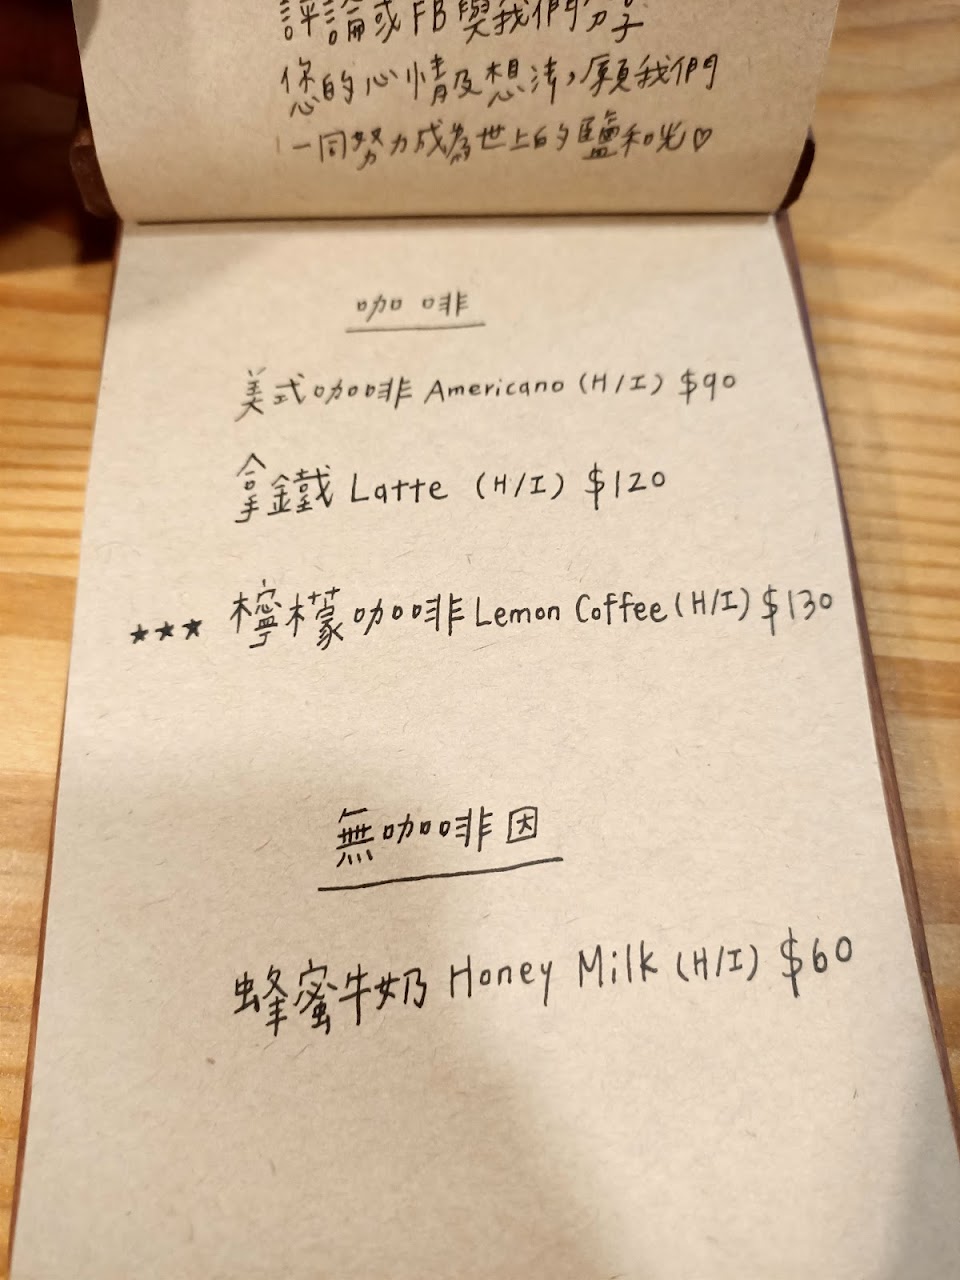 評論或FB與我們分享
您的心情及想法，願我們
一同努力成為世上的鹽和光♡
咖啡
美式咖啡 Americano (H/I) $90
拿鐵 Latte (H/I) $120
★★★ 檸檬咖啡 Lemon Coffee (H/I) $130
無咖啡因
蜂蜜牛奶 Honey Milk (H/I) $60